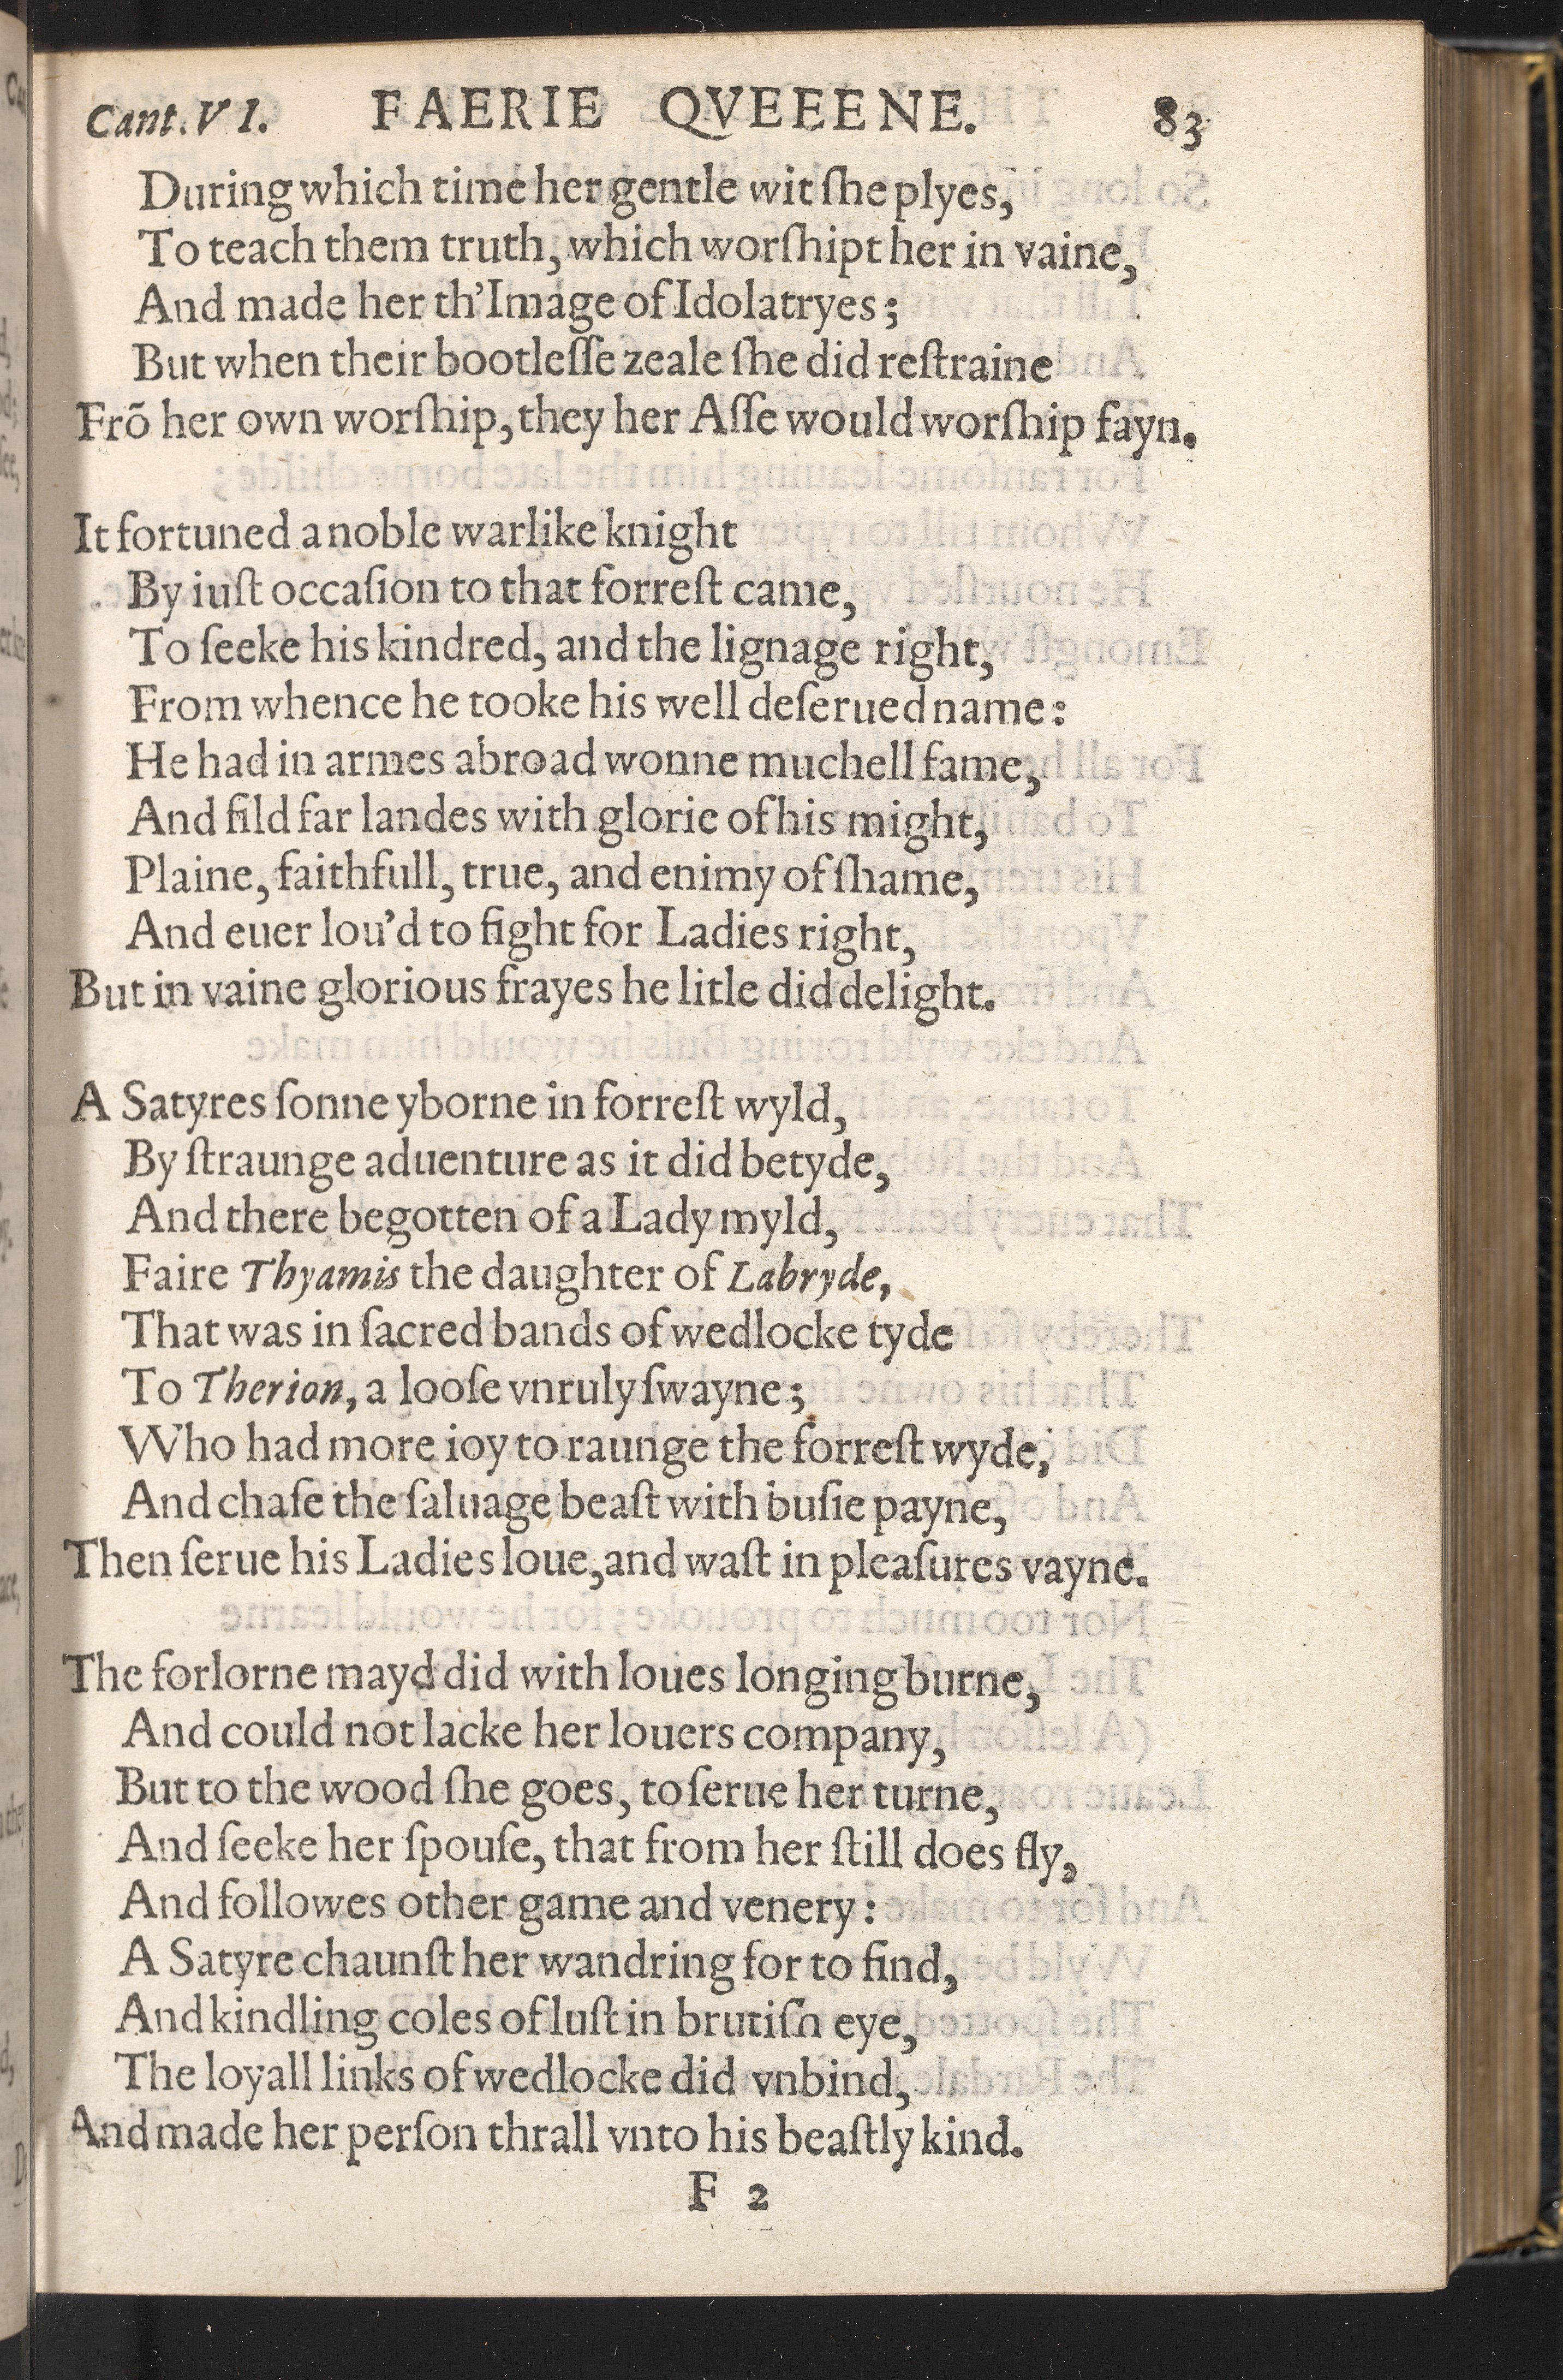 Cant. V I. FAERIE QVEEENE. 83
During which time her gentle wit ſhe plyes,
To teach them truth, which worſhipt her in vaine,
And made her th'Image of Idolatryes;
But when their bootleſſe zeale ſhe did reſtraine
Frõ her own worſhip, they her Aſſe would worſhip fayn.
It fortuned a noble warlike knight
By iuſt occaſion to that forreſt came,
To ſeeke his kindred, and the lignage right,
From whence he tooke his well deſerued name:
He had in armes abroad wonne muchell fame,
And fild far landes with glorie of his might,
Plaine, faithfull, true, and enimy of ſhame,
And euer lou'd to fight for Ladies right,
But in vaine glorious frayes he litle did delight.
A Satyres ſonne yborne in forreſt wyld,
By ſtraunge aduenture as it did betyde,
And there begotten of a Lady myld,
Faire Thyamis the daughter of Labryde,
That was in ſacred bands of wedlocke tyde
To Therion, a looſe vnruly ſwayne;
Who had more ioy to raunge the forreſt wyde,
And chaſe the ſaluage beaſt with buſie payne,
Then ſerue his Ladies loue, and waſt in pleaſures vayne.
The forlorne mayd did with loues longing burne,
And could not lacke her louers company,
But to the wood ſhe goes, to ſerue her turne,
And ſeeke her ſpouſe, that from her ſtill does fly,
And followes other game and venery:
A Satyre chaunſt her wandring for to find,
And kindling coles of luſt in brutiſh eye,
The loyall links of wedlocke did vnbind,
And made her perſon thrall vnto his beaſtly kind.
F 2